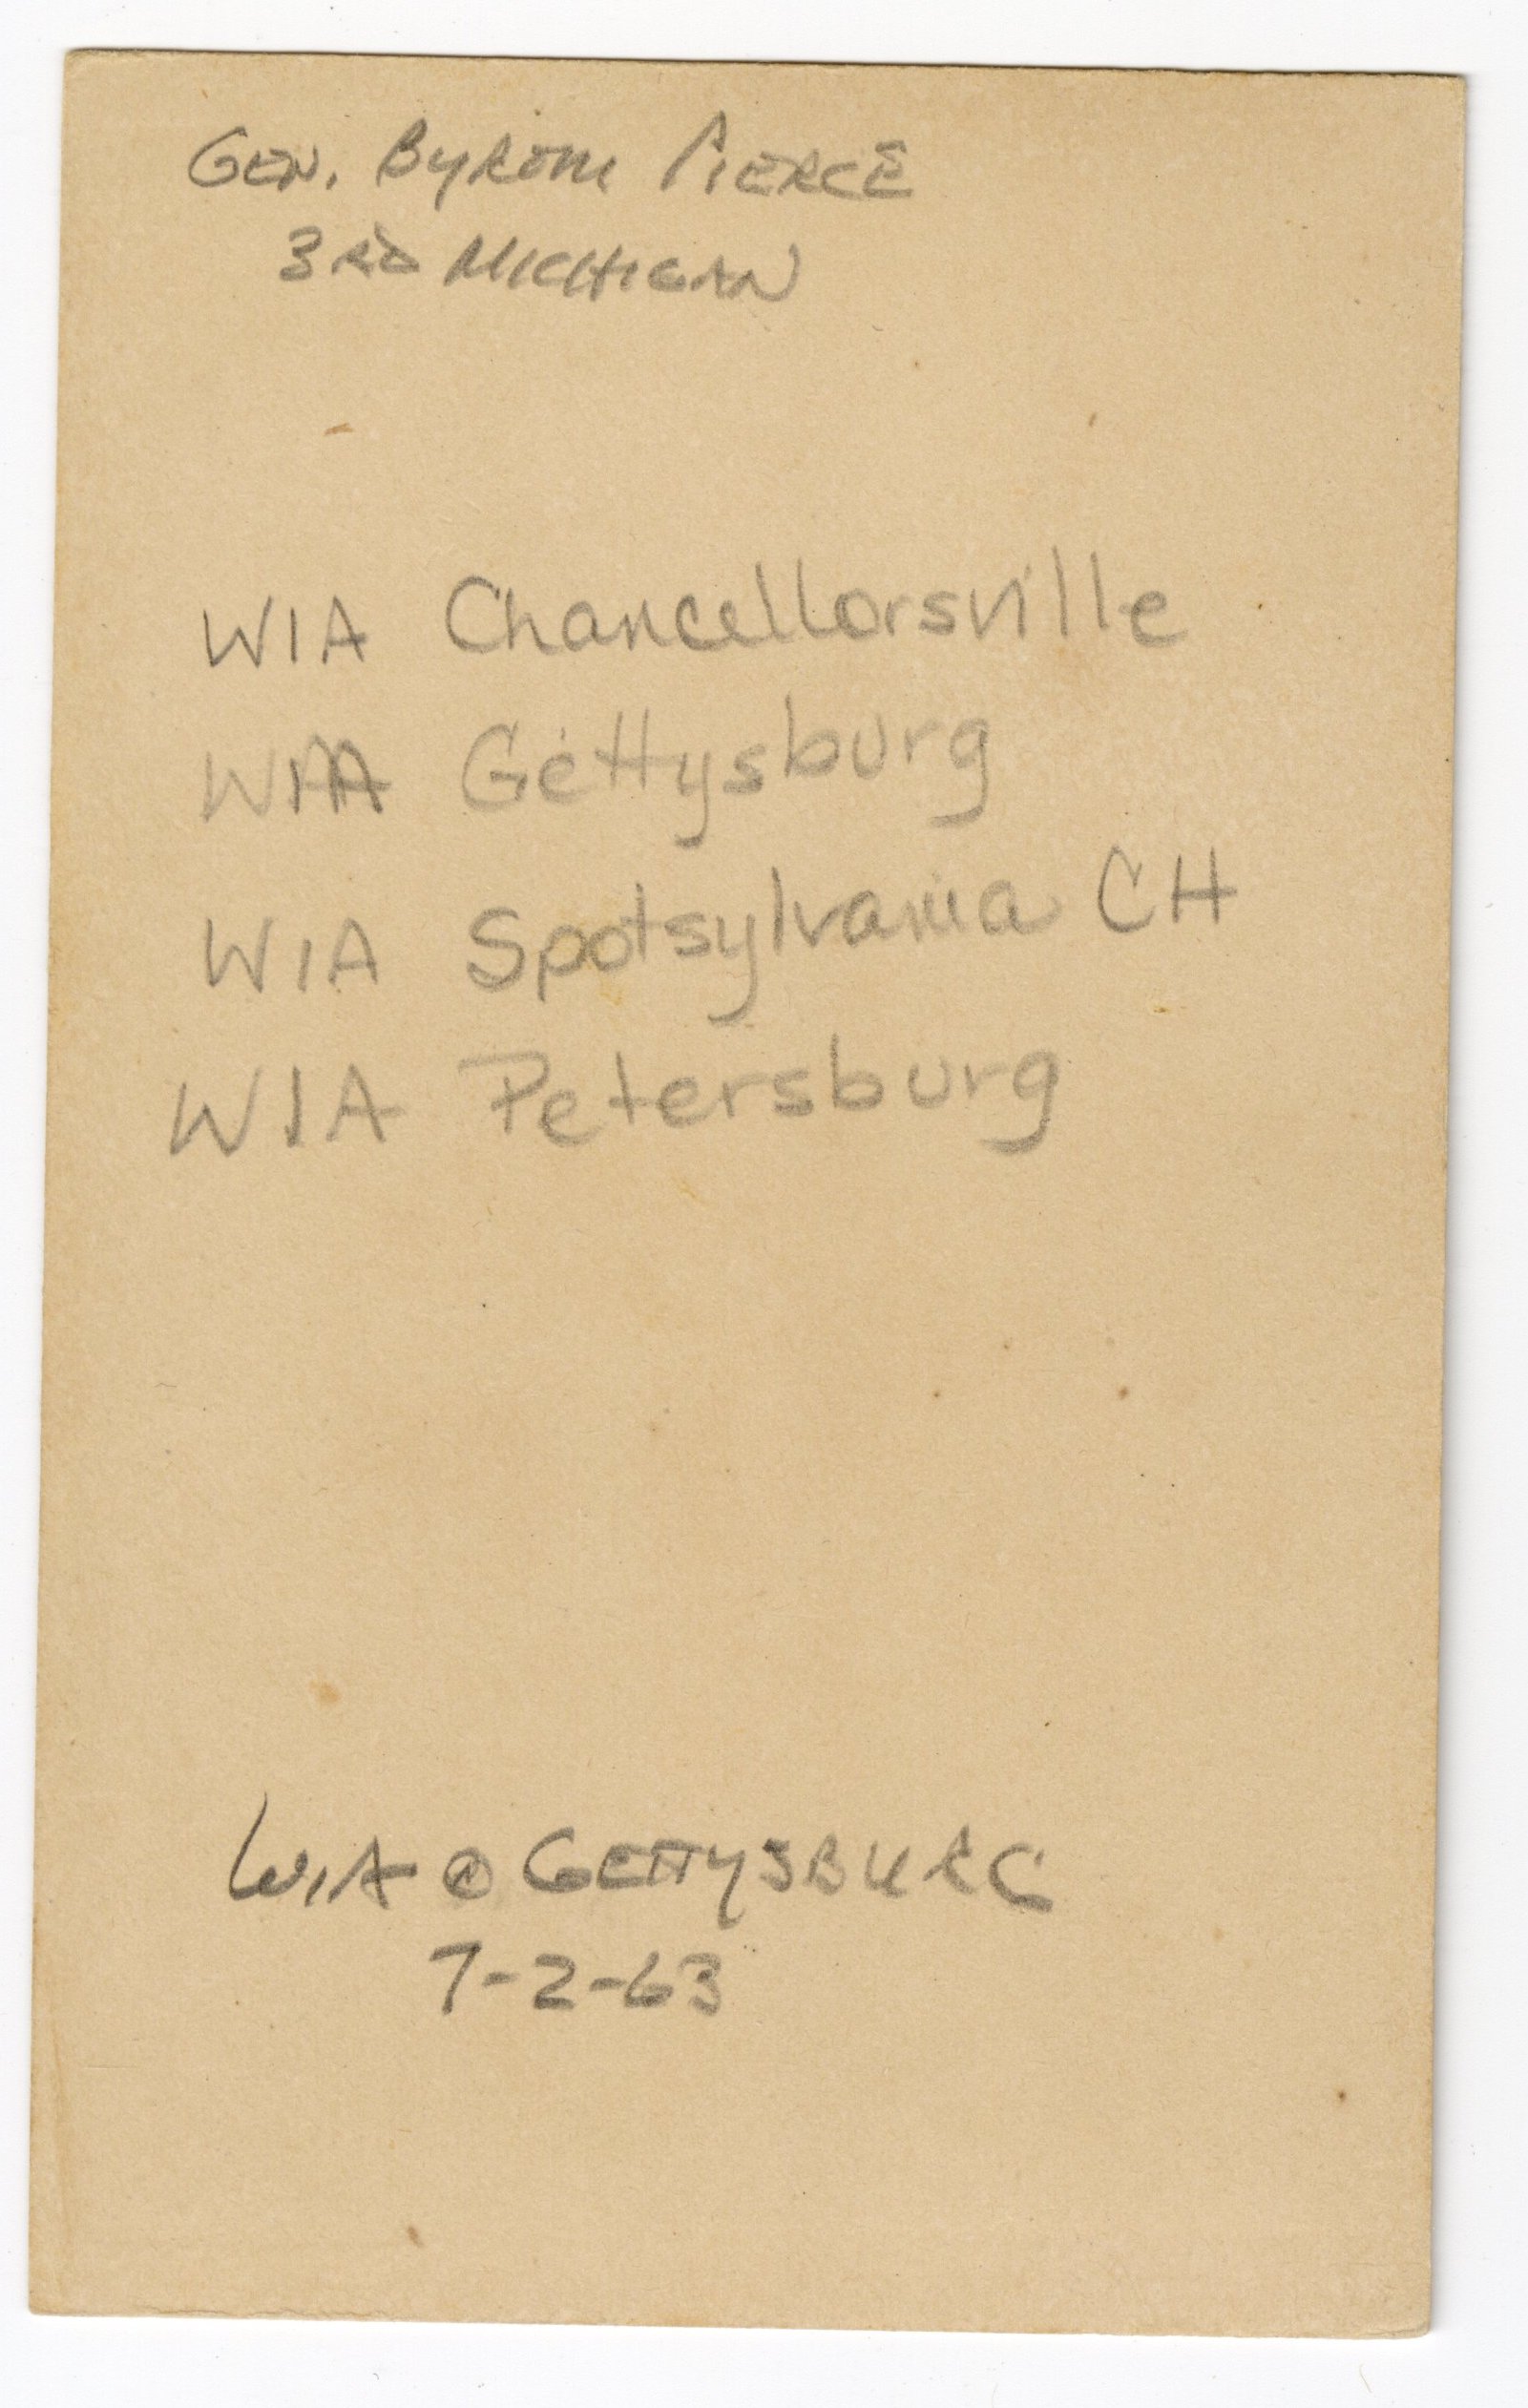 GEN. BYROM PIERCE
3RD MICHIGAN
WIA Chancellorsville
WIA Gettysburg
WIA Spotsylvania CH
WIA Petersburg
WIA @ GETTYSBURG
7-2-63